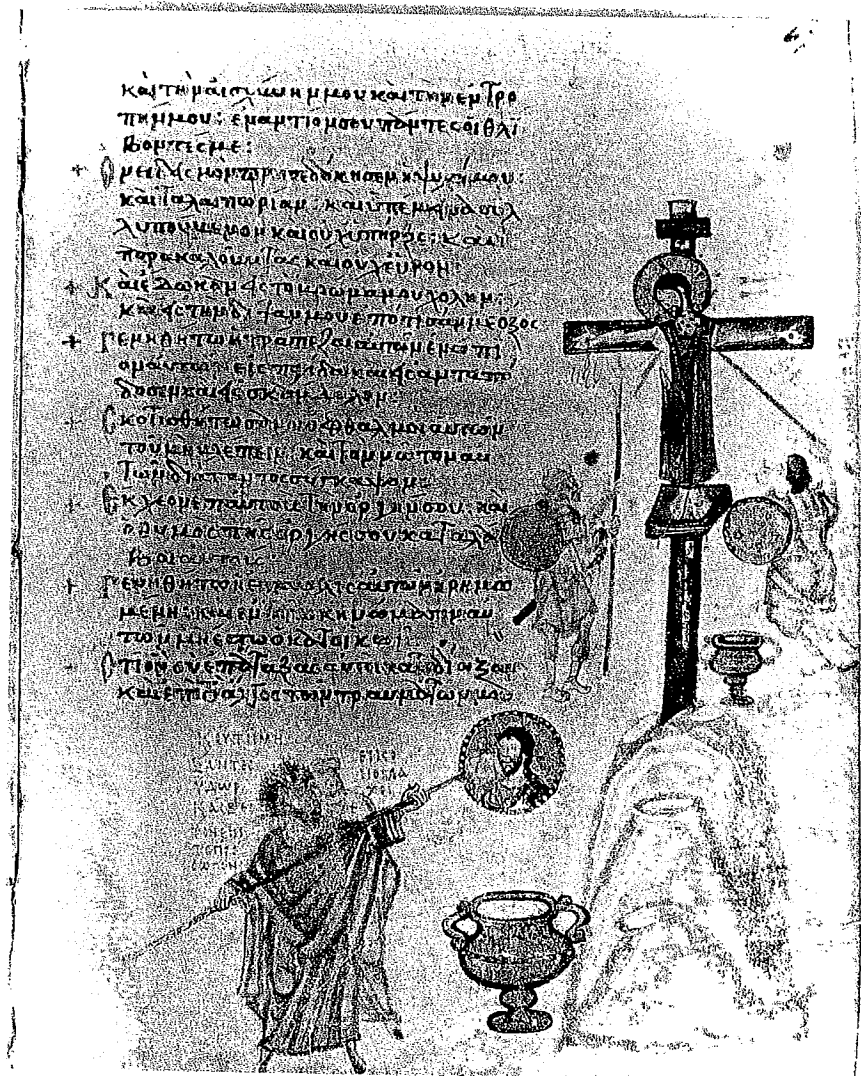 καὶ τὴν αἰσχύνην μου καὶ τὴν ἐντρο
πήν μου: ἐναντίον σου πάντες οἱ θλί
βοντές με:
Ὀνειδισμὸν προσεδόκησεν ἡ ψυχή μου:
καὶ ταλαιπωρίαν: καὶ ὑπέμεινα συλ
λυπούμενον καὶ οὐχ ὑπῆρξε: καὶ
παρακαλοῦντας καὶ οὐχ εὗρον:
Καὶ ἔδωκαν εἰς τὸ βρῶμά μου χολήν:
καὶ εἰς τὴν δίψαν μου ἐπότισάν με ὄξος
Γενηθήτω ἡ τράπεζα αὐτῶν ἐνώπι
ον αὐτῶν εἰς παγίδα καὶ εἰς ἀνταπό
δοσιν καὶ εἰς σκάνδαλον:
Σκοτισθήτωσαν οἱ ὀφθαλμοὶ αὐτῶν
τοῦ μὴ βλέπειν: καὶ τὸν νῶτον αὐ
τῶν διὰ παντὸς σύγκαμψον
Ἔκχεον ἐπ' αὐτοὺς τὴν ὀργήν σου, καὶ
ὁ θυμὸς τῆς ὀργῆς σου καταλά
βοι αὐτούς
Γενηθήτω ἡ ἔπαυλις αὐτῶν ἠρημω
μένη: καὶ ἐν τοῖς σκηνώμασιν αὐ
τῶν μὴ ἔστω ὁ κατοικῶν
Ὅτι ὃν σὺ ἐπάταξας αὐτοὶ κατεδίωξαν
καὶ ἐπὶ τὸ ἄλγος τῶν τραυμάτων μου